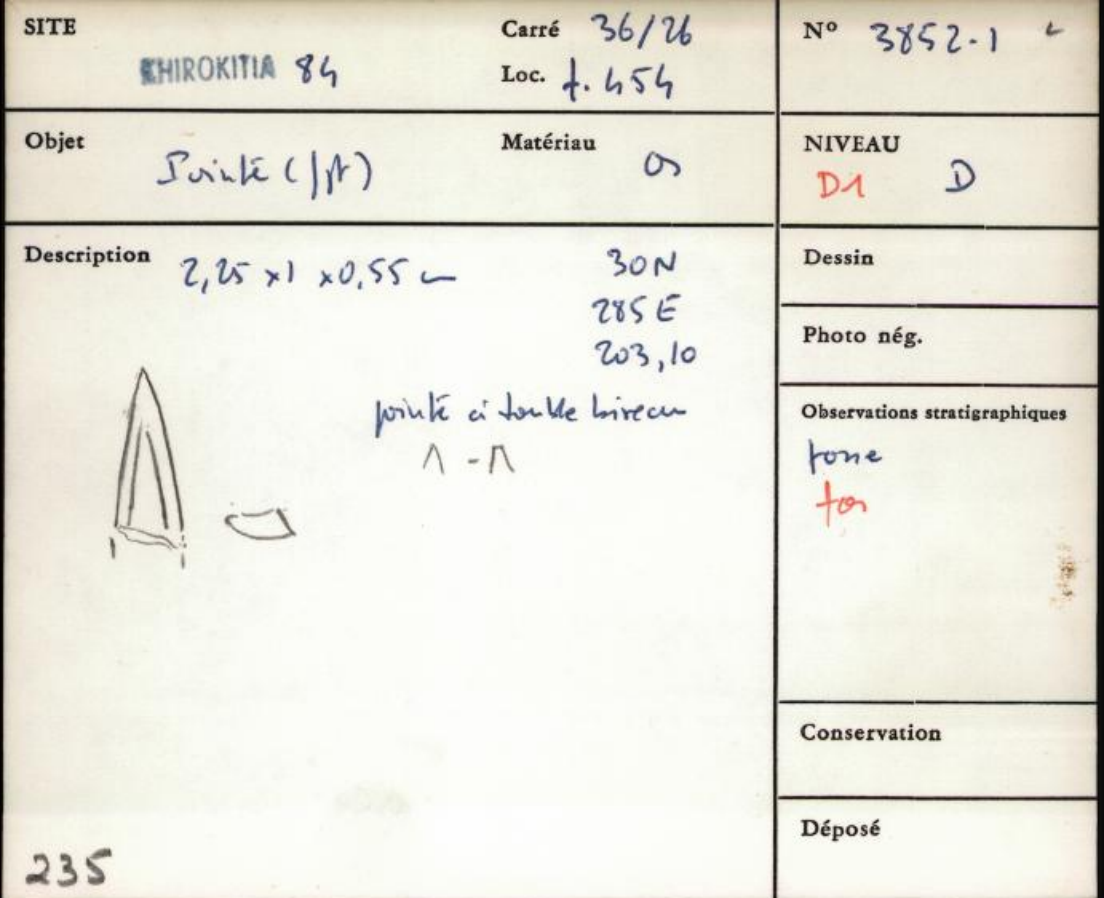 SITE
KHIROKITIA 84
Carré 36/26
Loc. f. 454
N° 3852.1
Objet
Pointe (fgt)
Matériau
os
NIVEAU
D1 D
Description
2,25 x 1 x 0,55 cm
30 N
285 E
203,10
pointe à double biseau
Λ - Π
Dessin
Photo nég.
Observations stratigraphiques
fosse
fos
Conservation
Déposé
235